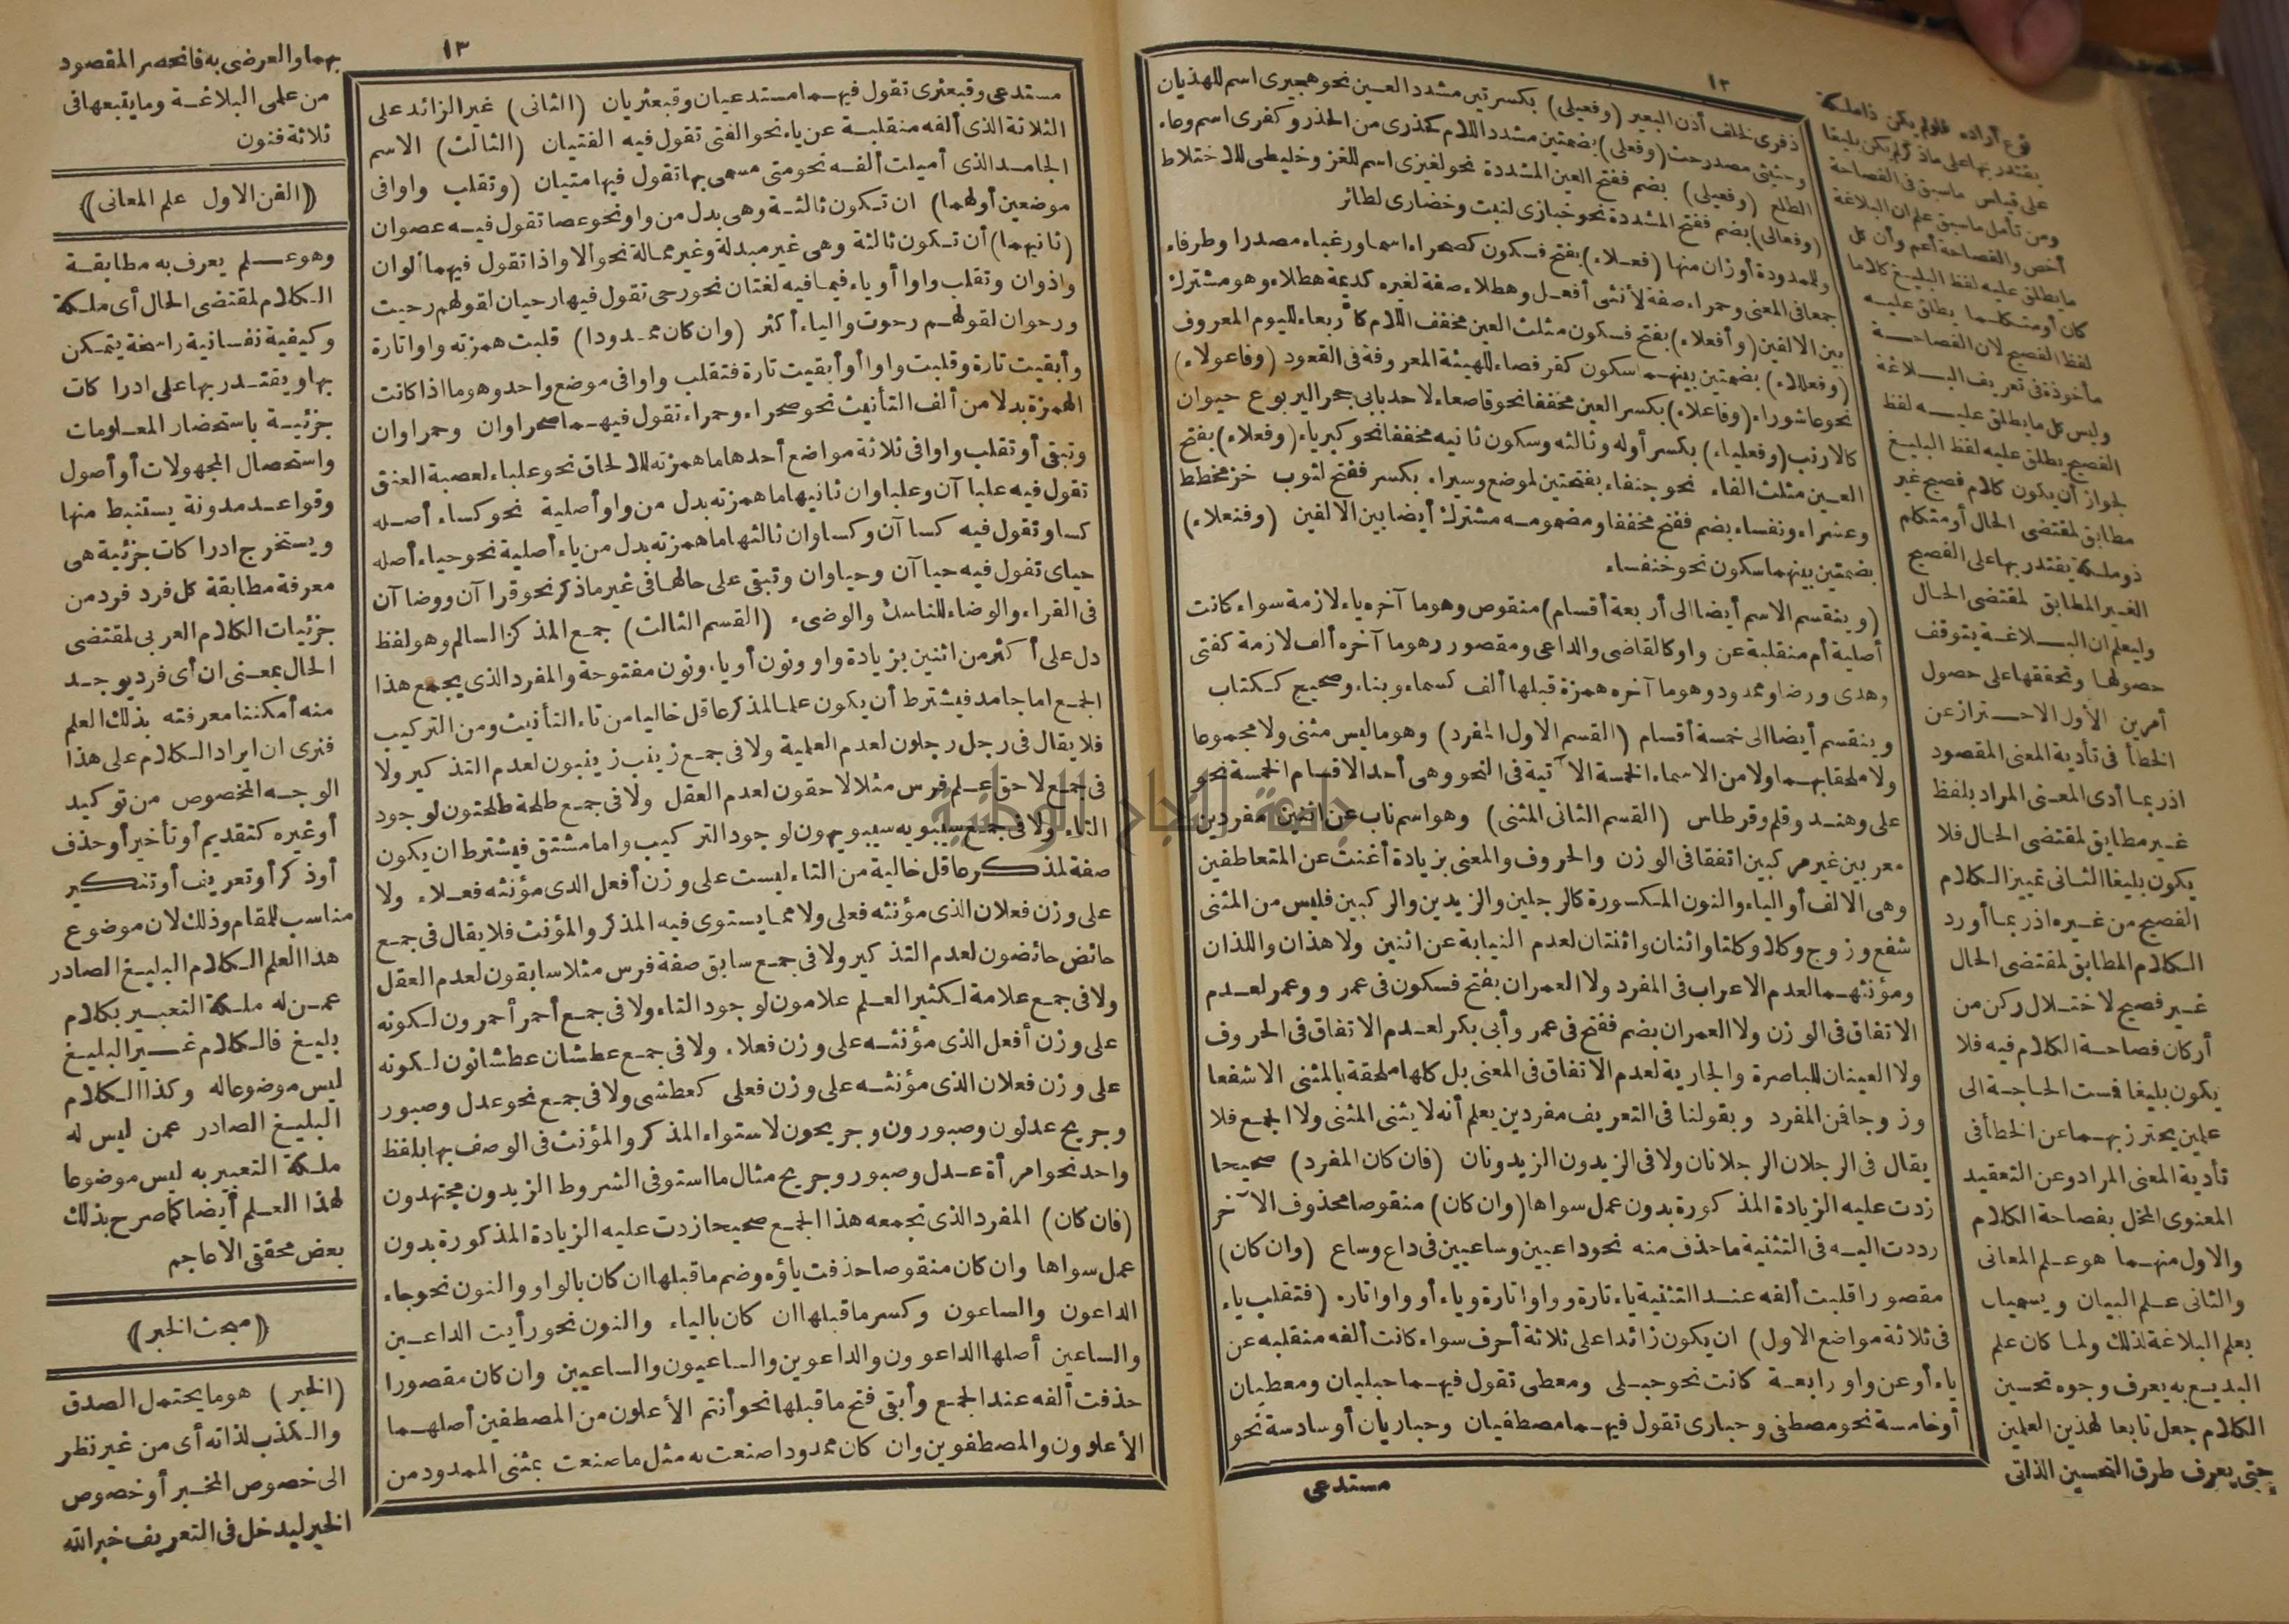 ١٢
ذفرى لخلف أذن البعير (وفعيلى) بكسرتين مشدد العين نحو هجيرى اسم للهذيان
وحثيثى مصدر حث (وفعلى) بضمتين مشدد اللام كحذرى من الحذر وكفرى اسم وعاء
الطلع (وفعيلى) بضم ففتح العين المشددة نحو لغيزى اسم للغز وخليطى للاختلاط
(وفعالى) بضم ففتح المشددة نحو خبازى لنبت وخضارى لطائر
وللممدودة أوزان منها (فعلاء) بفتح فسكون كصحراء اسما ورغباء مصدرا وطرفاء
جمعا فى المعنى وحمراء صفة لأنثى أفعل وهطلاء صفة لغيره كديمة هطلاء وهو مشترك
بين الالفين (وأفعلاء) بفتح فسكون مثلث العين مخفف اللام كأربعاء لليوم المعروف
(وفعللاء) بضمتين بينهما سكون كقرفصاء للهيئة المعروفة فى القعود (وفاعولاء)
نحو عاشوراء (وفاعلاء) بكسر العين مخففا نحو قاصعاء لاحد بابى جحر اليربوع حيوان
كالارنب (وفعلياء) بكسر أوله وثالثه وسكون ثانيه مخففا نحو كبرياء (وفعلاء) بفتح
العين مثلث الفاء نحو جنفاء بفتحتين لموضع وسيراء بكسر ففتح لثوب خز مخطط
وعشراء ونفساء بضم ففتح مخففا ومضمومه مشترك أيضا بين الالفين (وفنعلاء)
بضمتين بينهما سكون نحو خنفساء
(وينقسم الاسم أيضا الى أربعة أقسام) منقوص وهو ما آخره ياء لازمة سواء كانت
أصلية أم منقلبة عن واو كالقاضى والداعى ومقصور وهو ما آخره ألف لازمة كفتى
وهدى ورضا وممدود وهو ما آخره همزة قبلها ألف كسماء وبناء وصحيح ككتاب
وينقسم أيضا الى خمسة أقسام (القسم الاول المفرد) وهو ما ليس مثنى ولا مجموعا
ولا ملحقا بهما ولا من الاسماء الخمسة الآتية فى النحو وهى أحد الاقسام الخمسة نحو
على وهند وقلم وقرطاس (القسم الثانى المثنى) وهو اسم ناب عن اثنين مفردين
معربين غير مركبين اتفقا فى الوزن والحروف والمعنى بزيادة أغنت عن المتعاطفين
وهى الالف أو الياء والنون المكسورة كالرجلين والزيدين والركبين فليس من المثنى
شفع وزوج وكلا وكلتا واثنان واثنتان لعدم النيابة عن اثنين ولا هذان واللذان
ومؤنثهما لعدم الاعراب فى المفرد ولا العمران بفتح فسكون فى عمر و وعمر لعدم
الاتفاق فى الوزن ولا العمران بضم ففتح فى عمر وأبى بكر لعدم الاتفاق فى الحروف
ولا العينان للباصرة والجارية لعدم الاتفاق فى المعنى بل كلها ملحقة بالمثنى الا شفعا
وزوجا فمن المفرد وبقولنا فى التعريف مفردين يعلم أنه لا يثنى المثنى ولا الجمع فلا
يقال فى الرجلان الرجلانان ولا فى الزيدون الزيدونان (فان كان المفرد) صحيحا
زدت عليه الزيادة المذكورة بدون عمل سواها (وان كان) منقوصا محذوف الآخر
رددت اليه فى التثنية ما حذف منه نحو داعيين وساعيين فى داع وساع (وان كان)
مقصورا قلبت ألفه عند التثنية ياء تارة وواوا تارة وياء أو واوا تارة (فتقلب ياء
فى ثلاثة مواضع الاول) ان يكون زائدا على ثلاثة أحرف سواء كانت ألفه منقلبه عن
ياء أو عن واو رابعة كانت نحو حبلى ومعطى تقول فيهما حبليان ومعطيان
أو خامسة نحو مصطفى وحبارى تقول فيهما مصطفيان وحباريان أو سادسة نحو
مستدعى
نوع أراده فلو لم يكن ذا ملكة
يقتدر بها على ما ذكر لم يكن بليغا
على قياس ما سبق فى الفصاحة
ومن تأمل ما سبق علم ان البلاغة
أخص والفصاحة أعم وأن كل
ما يطلق عليه لفظ البليغ كلاما
كان أو متكلما يطلق عليه
لفظ الفصيح لان الفصاحة
مأخوذة فى تعريف البلاغة
وليس كل ما يطلق عليه لفظ
الفصيح يطلق عليه لفظ البليغ
لجواز أن يكون كلام فصيح غير
مطابق لمقتضى الحال أو متكلم
ذو ملكة يقتدر بها على الفصيح
الغير المطابق لمقتضى الحال
وليعلم ان البلاغة يتوقف
حصولها وتحققها على حصول
أمرين الأول الاحتراز عن
الخطأ فى تأدية المعنى المقصود
اذ ربما أدى المعنى المراد بلفظ
غير مطابق لمقتضى الحال فلا
يكون بليغا الثانى تمييز الكلام
الفصيح من غيره اذ ربما أورد
الكلام المطابق لمقتضى الحال
غير فصيح لاختلال ركن من
أركان فصاحة الكلام فيه فلا
يكون بليغا فمست الحاجة الى
علمين يحترز بهما عن الخطأ فى
تأدية المعنى المراد وعن التعقيد
المعنوى المخل بفصاحة الكلام
والاول منهما هو علم المعانى
والثانى علم البيان ويسميان
بعلم البلاغة لذلك ولما كان علم
البديع به يعرف وجوه تحسين
الكلام جعل تابعا لهذين العلمين
حتى يعرف طرق التحسين الذاتى
١٣
مستدعى وقبعثرى تقول فيهما مستدعيان وقبعثريان (الثانى) غير الزائد على
الثلاثة الذى ألفه منقلبة عن ياء نحو الفتى تقول فيه الفتيان (الثالث) الاسم
الجامد الذى أميلت ألفه نحو متى مسمى بها تقول فيها متيان (وتقلب واوا فى
موضعين أولهما) ان تكون ثالثة وهى بدل من واو نحو عصا تقول فيه عصوان
(ثانيهما) أن تكون ثالثة وهى غير مبدلة وغير ممالة نحو ألا واذا تقول فيهما ألوان
واذوان وتقلب واوا أو ياء فيما فيه لغتان نحو رحى تقول فيها رحيان لقولهم رحيت
ورحوان لقولهم رحوت والياء أكثر (وان كان ممدودا) قلبت همزته واوا تارة
وأبقيت تارة وقلبت واوا أو أبقيت تارة فتقلب واوا فى موضع واحد وهو ما اذا كانت
الهمزة بدلا من ألف التأنيث نحو صحراء وحمراء تقول فيهما صحراوان وحمراوان
وتبقى أو تقلب واوا فى ثلاثة مواضع أحدها ما همزته للالحاق نحو علباء لعصبة العنق
تقول فيه علبا آن وعلباوان ثانيها ما همزته بدل من واو أصلية نحو كساء أصله
كساو تقول فيه كسا آن وكساوان ثالثها ما همزته بدل من ياء أصلية نحو حياء أصله
حياى تقول فيه حيا آن وحياوان وتبقى على حالها فى غير ما ذكر نحو قرا آن ووضا آن
فى القراء والوضاء للناسك والوضىء (القسم الثالث) جمع المذكر السالم وهو لفظ
دل على أكثر من اثنين بزيادة واو ونون أو ياء ونون مفتوحة والمفرد الذى يجمع هذا
الجمع اما جامد فيشترط أن يكون علما لمذكر عاقل خاليا من تاء التأنيث ومن التركيب
فلا يقال فى رجل رجلون لعدم العلمية ولا فى جمع زينب زينبون لعدم التذكير ولا
فى جمع لاحق علم فرس مثلا لاحقون لعدم العقل ولا فى جمع طلحة طلحتون لوجود
التاء ولا فى جمع سيبويه سيبويهون لوجود التركيب واما مشتق فيشترط ان يكون
صفة لمذكر عاقل خالية من التاء ليست على وزن أفعل الذى مؤنثه فعلاء ولا
على وزن فعلان الذى مؤنثه فعلى ولا مما يستوى فيه المذكر والمؤنث فلا يقال فى جمع
حائض حائضون لعدم التذكير ولا فى جمع سابق صفة فرس مثلا سابقون لعدم العقل
ولا فى جمع علامة لكثير العلم علامون لوجود التاء ولا فى جمع أحمر أحمرون لكونه
على وزن أفعل الذى مؤنثه على وزن فعلاء ولا فى جمع عطشان عطشانون لكونه
على وزن فعلان الذى مؤنثه على وزن فعلى كعطشى ولا فى جمع نحو عدل وصبور
وجريح عدلون وصبورون وجريحون لاستواء المذكر والمؤنث فى الوصف بها بلفظ
واحد نحو امرأة عدل وصبور وجريح مثال ما استوفى الشروط الزيدون مجتهدون
(فان كان) المفرد الذى تجمعه هذا الجمع صحيحا زدت عليه الزيادة المذكورة بدون
عمل سواها وان كان منقوصا حذفت ياؤه وضم ما قبلها ان كان بالواو والنون نحو جاء
الداعون والساعون وكسر ما قبلها ان كان بالياء والنون نحو رأيت الداعين
والساعين أصلها الداعوون والداعوين والساعيون والساعيين وان كان مقصورا
حذفت ألفه عند الجمع وأبقى فتح ما قبلها نحو أنتم الأعلون من المصطفين أصلهما
الأعلوون والمصطفوين وان كان ممدودا صنعت به مثل ما صنعت بمثنى الممدود من
بهما والعرضى به فانحصر المقصود
من علمى البلاغة وما يتبعها فى
ثلاثة فنون
﴿الفن الاول علم المعانى﴾
وهو علم يعرف به مطابقة
الكلام لمقتضى الحال أى ملكة
وكيفية نفسانية راسخة يتمكن
بها ويقتدر بها على ادراكات
جزئية باستحضار المعلومات
واستحصال المجهولات أو أصول
وقواعد مدونة يستنبط منها
ويستخرج ادراكات جزئية هى
معرفة مطابقة كل فرد فرد من
جزئيات الكلام العربى لمقتضى
الحال بمعنى ان أى فرد يوجد
منه أمكننا معرفته بذلك العلم
فنرى ان ايراد الكلام على هذا
الوجه المخصوص من توكيد
أو غيره كتقديم أو تأخير أو حذف
أو ذكر أو تعريف أو تنكير
مناسب للمقام وذلك لان موضوع
هذا العلم الكلام البليغ الصادر
عمن له ملكة التعبير بكلام
بليغ فالكلام غير البليغ
ليس موضوعا له وكذا الكلام
البليغ الصادر عمن ليس له
ملكة التعبير به ليس موضوعا
لهذا العلم أيضا كما صرح بذلك
بعض محققى الاعاجم
﴿مبحث الخبر﴾
(الخبر) هو ما يحتمل الصدق
والكذب لذاته أى من غير نظر
الى خصوص المخبر أو خصوص
الخبر ليدخل فى التعريف خبر الله
جامعة النجاح الوطنية